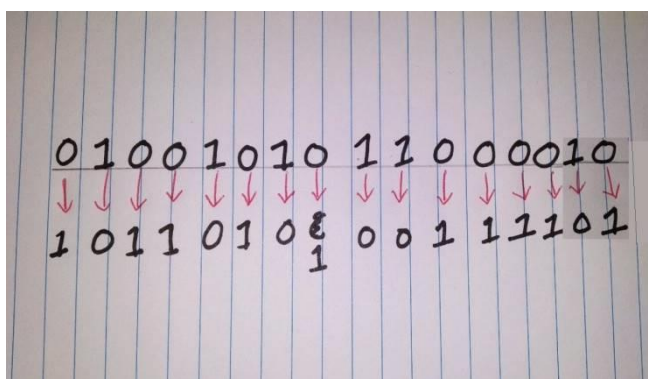 0 1 0 0 1 0 1 0 1 1 0 0 0 0 1 0
1 0 1 1 0 1 0 0 0 1 1 1 1 0 1
1